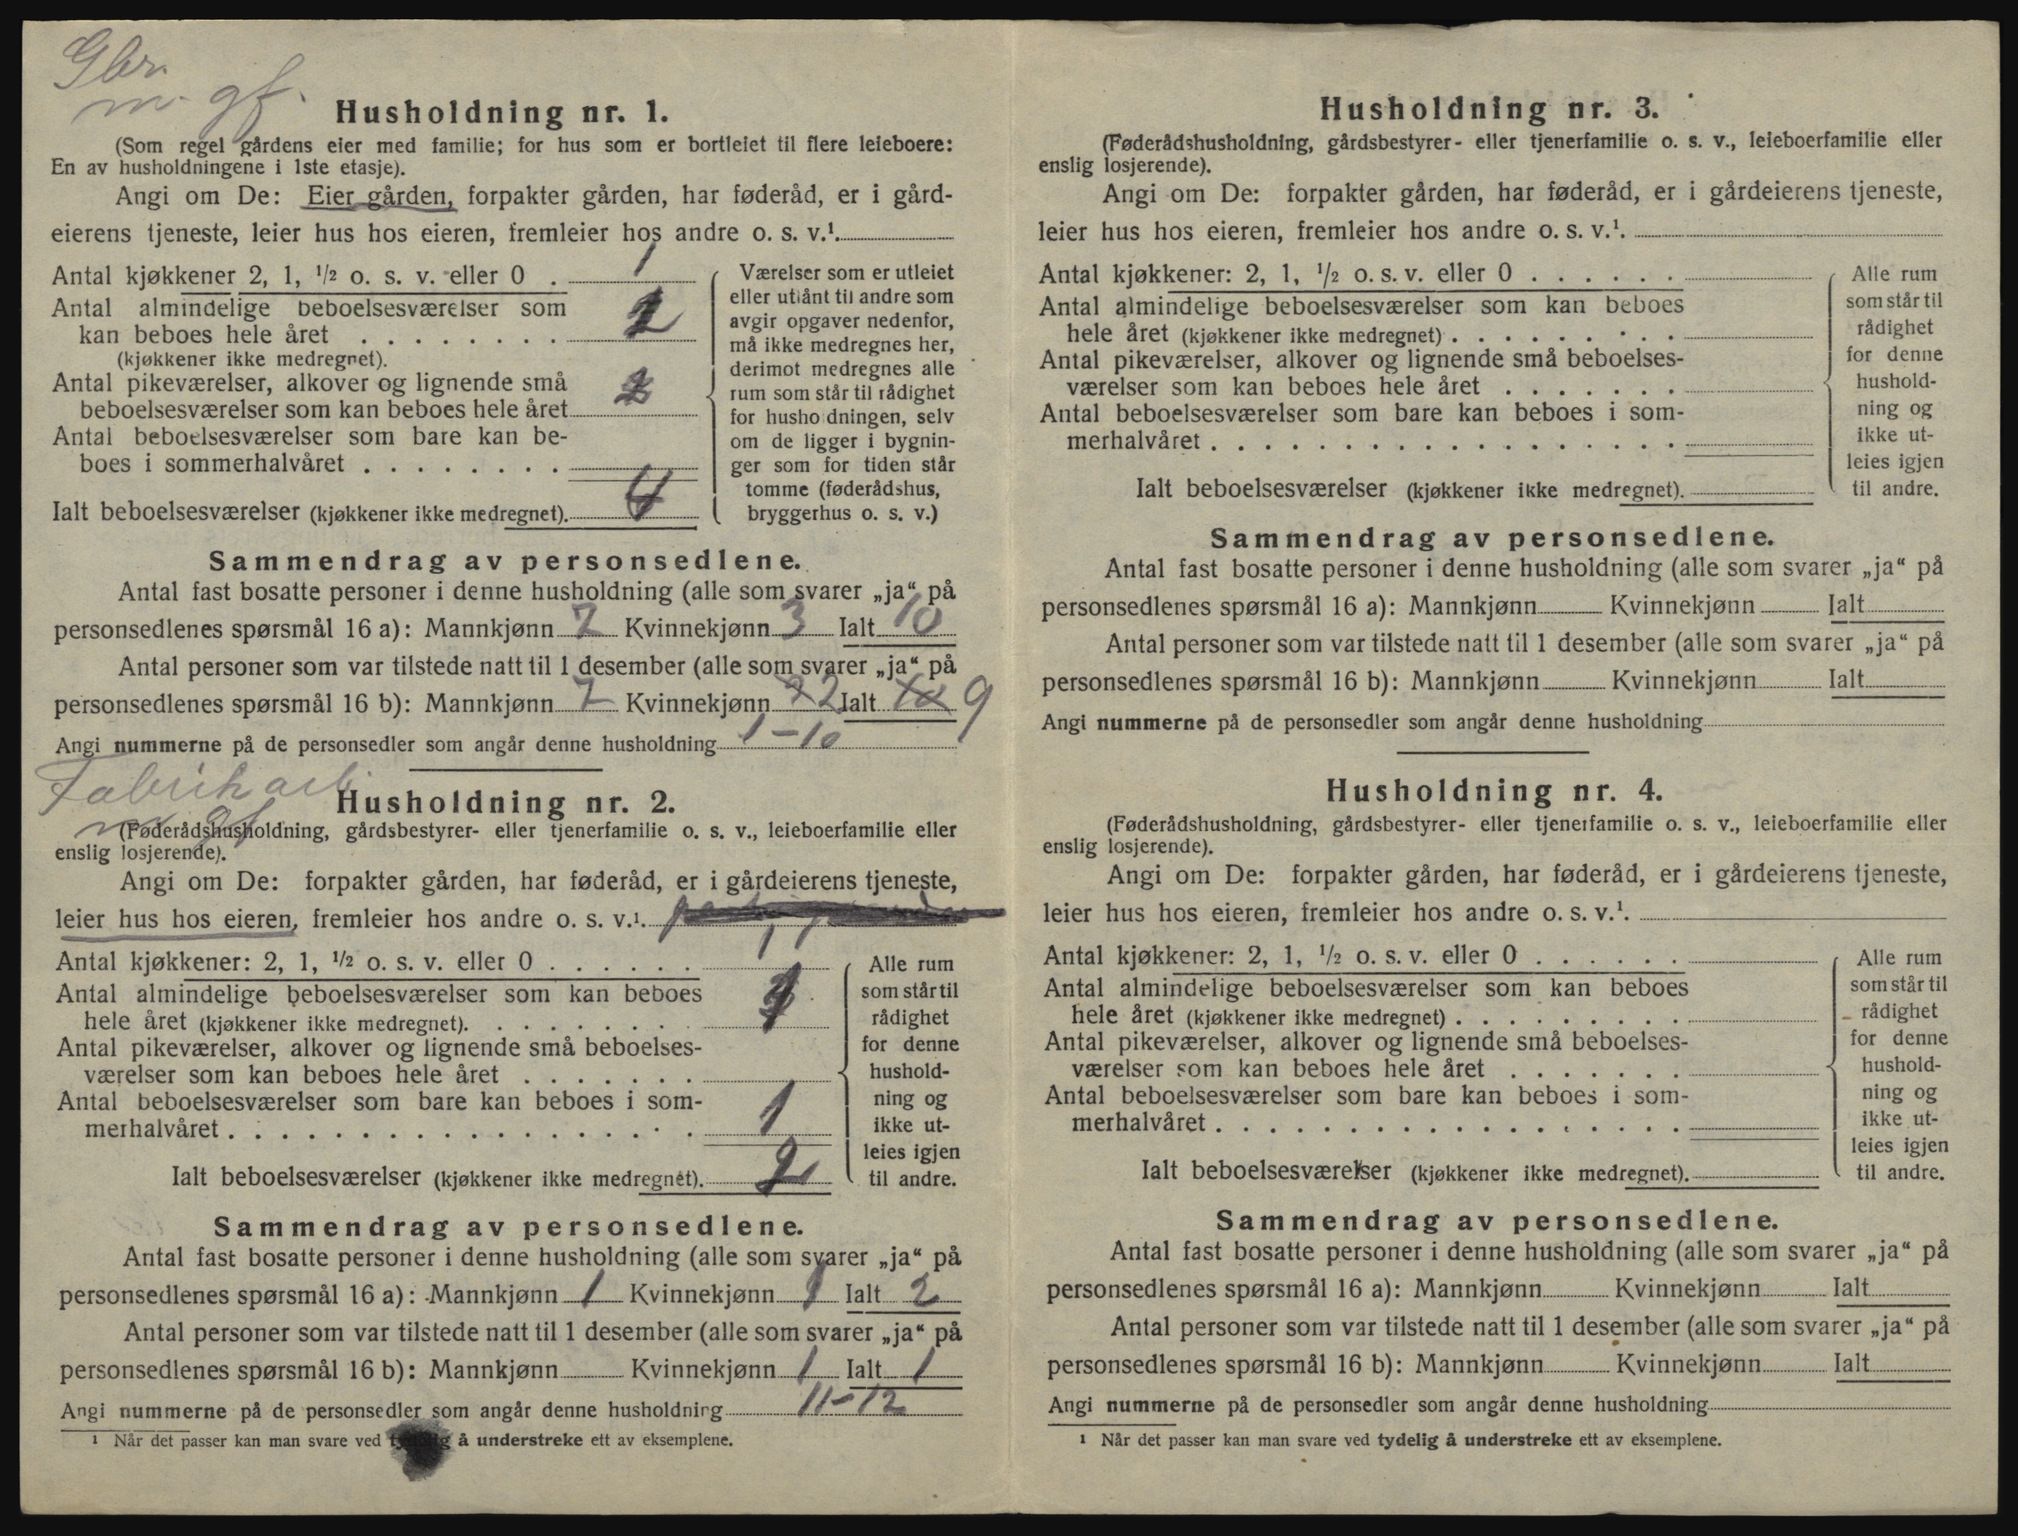 Gbr.
m. gf.
Husholdning nr. 1.
(Som regel gårdens eier med familie; for hus som er bortleiet til flere leieboere:
En av husholdningene i 1ste etasje).
Angi om De: Eier gården, forpakter gården, har føderåd, er i gård-
eierens tjeneste, leier hus hos eieren, fremleier hos andre o. s. v.¹.
Antal kjøkkener 2, 1, ½ o. s. v. eller 0 . 1
Antal almindelige beboelsesværelser som
kan beboes hele året . . . . . . . . 2
(kjøkkener ikke medregnet).
Antal pikeværelser, alkover og lignende små
beboelsesværelser som kan beboes hele året 2
Antal beboelsesværelser som bare kan be-
boes i sommerhalvåret . . . . . . . .
Ialt beboelsesværelser (kjøkkener ikke medregnet). 4
Værelser som er utleiet
eller utlånt til andre som
avgir opgaver nedenfor,
må ikke medregnes her,
derimot medregnes alle
rum som står til rådighet
for husholdningen, selv
om de ligger i bygnin-
ger som for tiden står
tomme (føderådshus,
bryggerhus o. s. v.)
Sammendrag av personsedlene.
Antal fast bosatte personer i denne husholdning (alle som svarer „ja“ på
personsedlenes spørsmål 16 a): Mannkjønn 7 Kvinnekjønn 3 Ialt 10
Antal personer som var tilstede natt til 1 desember (alle som svarer „ja“ på
personsedlenes spørsmål 16 b): Mannkjønn 7 Kvinnekjønn 2 Ialt 10 9
Angi nummerne på de personsedler som angår denne husholdning 1-10
Fabrikarb.
m gf
Husholdning nr. 2.
(Føderådshusholdning, gårdsbestyrer- eller tjenerfamilie o. s. v., leieboerfamilie eller
enslig losjerende).
Angi om De: forpakter gården, har føderåd, er i gårdeierens tjeneste,
leier hus hos eieren, fremleier hos andre o. s. v.¹.
Antal kjøkkener: 2, 1, ½ o. s. v. eller 0 . . . . . . 1
Antal almindelige beboelsesværelser som kan beboes
hele året (kjøkkener ikke medregnet). . . . . . . . . 1
Antal pikeværelser, alkover og lignende små beboelses-
værelser som kan beboes hele året . . . . . . .
Antal beboelsesværelser som bare kan beboes i som-
merhalvåret . . . . . . . . . . . . . . . . . . 1
Ialt beboelsesværelser (kjøkkener ikke medregnet). 2
Alle rum
som står til
rådighet
for denne
hushold-
ning og
ikke ut-
leies igjen
til andre.
Sammendrag av personsedlene.
Antal fast bosatte personer i denne husholdning (alle som svarer „ja“ på
personsedlenes spørsmål 16 a): Mannkjønn 1 Kvinnekjønn 1 Ialt 2
Antal personer som var tilstede natt til 1 desember (alle som svarer „ja“ på
personsedlenes spørsmål 16 b): Mannkjønn Kvinnekjønn 1 Ialt 1
Angi nummerne på de personsedler som angår denne husholdning 11-12
¹ Når det passer kan man svare ved tydelig å understreke ett av eksemplene.
Husholdning nr. 3.
(Føderådshusholdning, gårdsbestyrer- eller tjenerfamilie o. s. v., leieboerfamilie eller
enslig losjerende).
Angi om De: forpakter gården, har føderåd, er i gårdeierens tjeneste,
leier hus hos eieren, fremleier hos andre o. s. v.¹.
Antal kjøkkener: 2, 1, ½ o. s. v. eller 0 . . . . . .
Antal almindelige beboelsesværelser som kan beboes
hele året (kjøkkener ikke medregnet) . . . . . . . . .
Antal pikeværelser, alkover og lignende små beboelses-
værelser som kan beboes hele året . . . . . . .
Antal beboelsesværelser som bare kan beboes i som-
merhalvåret . . . . . . . . . . . . . . . . . .
Ialt beboelsesværelser (kjøkkener ikke medregnet).
Alle rum
som står til
rådighet
for denne
hushold-
ning og
ikke ut-
leies igjen
til andre.
Sammendrag av personsedlene.
Antal fast bosatte personer i denne husholdning (alle som svarer „ja“ på
personsedlenes spørsmål 16 a): Mannkjønn Kvinnekjønn Ialt
Antal personer som var tilstede natt til 1 desember (alle som svarer „ja“ på
personsedlenes spørsmål 16 b): Mannkjønn Kvinnekjønn Ialt
Angi nummerne på de personsedler som angår denne husholdning
Husholdning nr. 4.
(Føderådshusholdning, gårdsbestyrer- eller tjenerfamilie o. s. v., leieboerfamilie eller
enslig losjerende).
Angi om De: forpakter gården, har føderåd, er i gårdeierens tjeneste,
leier hus hos eieren, fremleier hos andre o. s. v.¹.
Antal kjøkkener: 2, 1, ½ o. s. v. eller 0 . . . . . .
Antal almindelige beboelsesværelser som kan beboes
hele året (kjøkkener ikke medregnet) . . . . . . . . .
Antal pikeværelser, alkover og lignende små beboelses-
værelser som kan beboes hele året . . . . . . .
Antal beboelsesværelser som bare kan beboes i som-
merhalvåret . . . . . . . . . . . . . . . . . .
Ialt beboelsesværelser (kjøkkener ikke medregnet).
Alle rum
som står til
rådighet
for denne
hushold-
ning og
ikke ut-
leies igjen
til andre.
Sammendrag av personsedlene.
Antal fast bosatte personer i denne husholdning (alle som svarer „ja“ på
personsedlenes spørsmål 16 a): Mannkjønn Kvinnekjønn Ialt
Antal personer som var tilstede natt til 1 desember (alle som svarer „ja“ på
personsedlenes spørsmål 16 b): Mannkjønn Kvinnekjønn Ialt
Angi nummerne på de personsedler som angår denne husholdning
¹ Når det passer kan man svare ved tydelig å understreke ett av eksemplene.